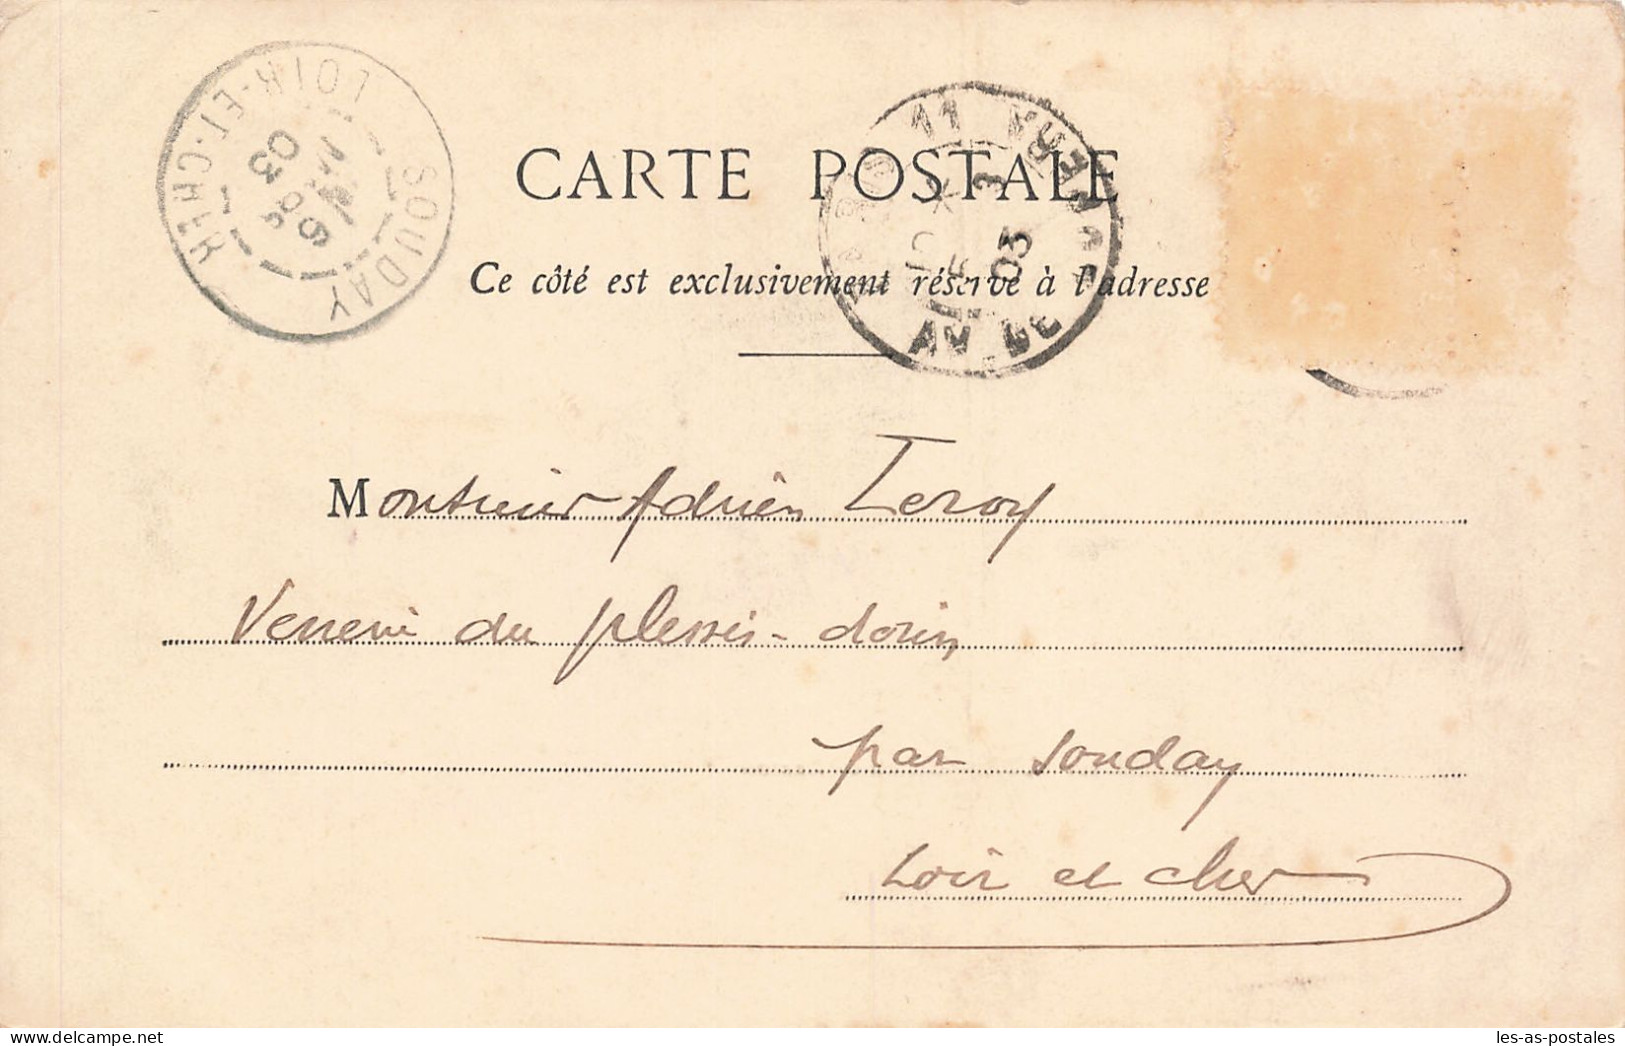 SOUDAY
LOIR-ET-CHER
03
CARTE POSTALE
Ce côté est exclusivement réservé à l'adresse
11
03
AV. DE
Monsieur Adrien Leroy
Verrerie du plessis-dorin
par Souday
Loir et cher
les-as-postales